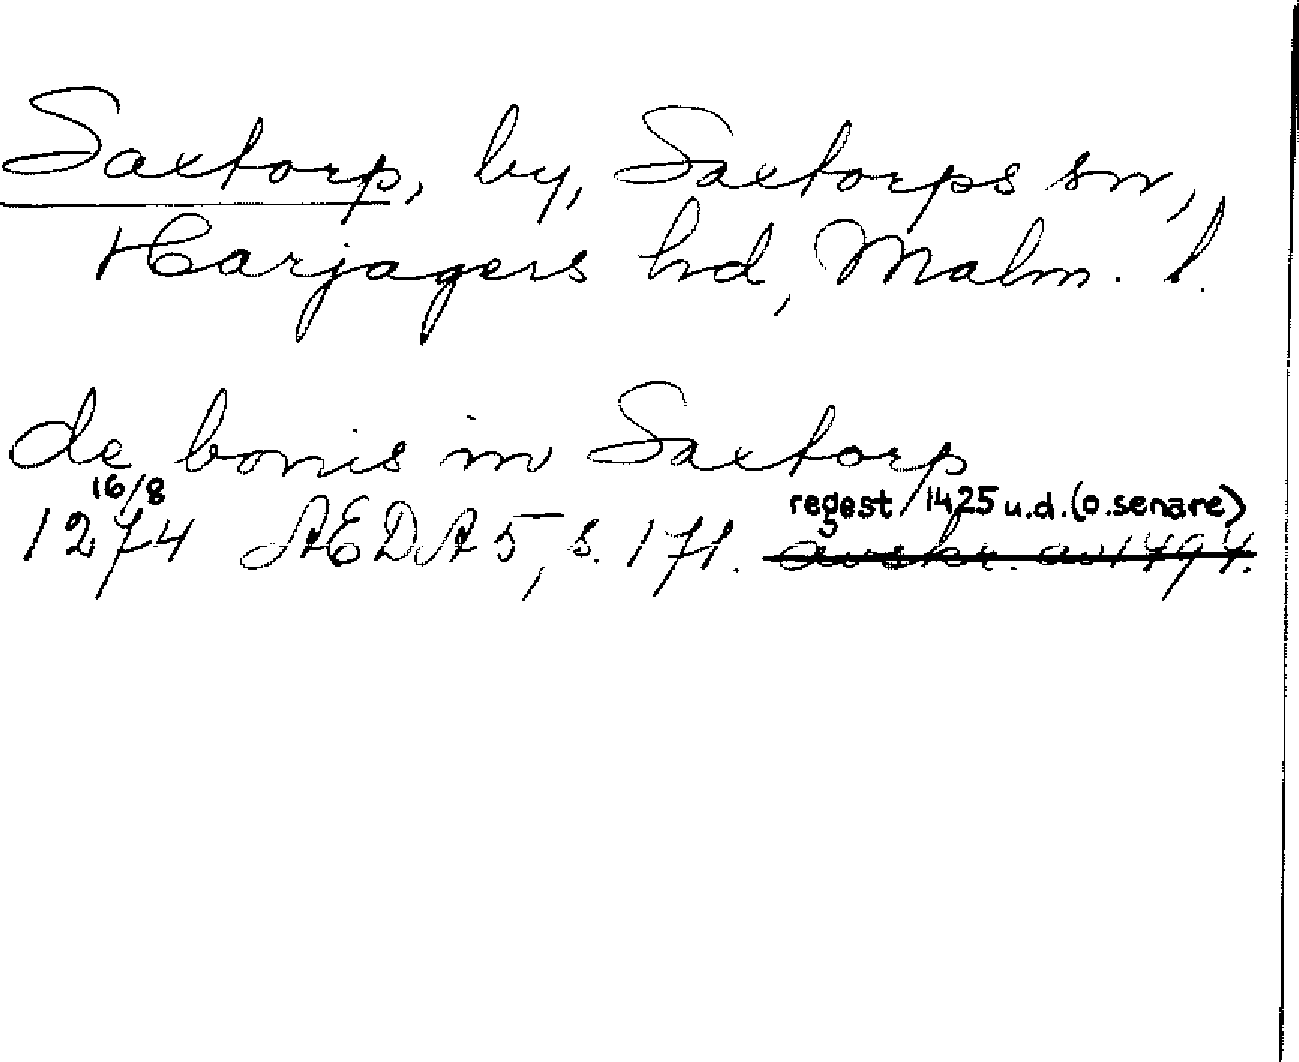 Saxtorp, by, Saxtorps sn,
Harjagers hd, Malm. l.
de bonis in Saxtorp
16/8 regest 1425 u.d. (o. senare)
1274 AEDA 5, s. 171. avskr. av 1494.